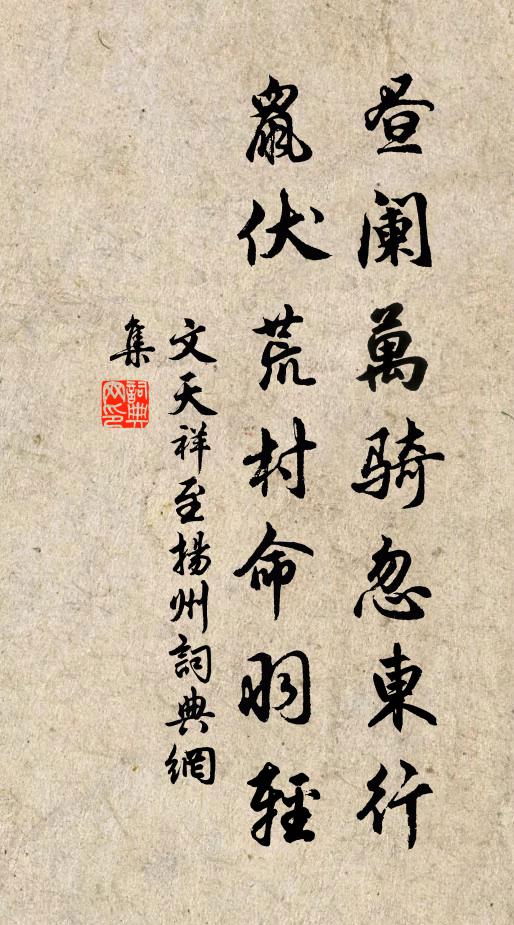 昼阑萬骑忽東行
鼠伏荒村命羽輕
文天祥至揚州詞典網
集
詞典網印